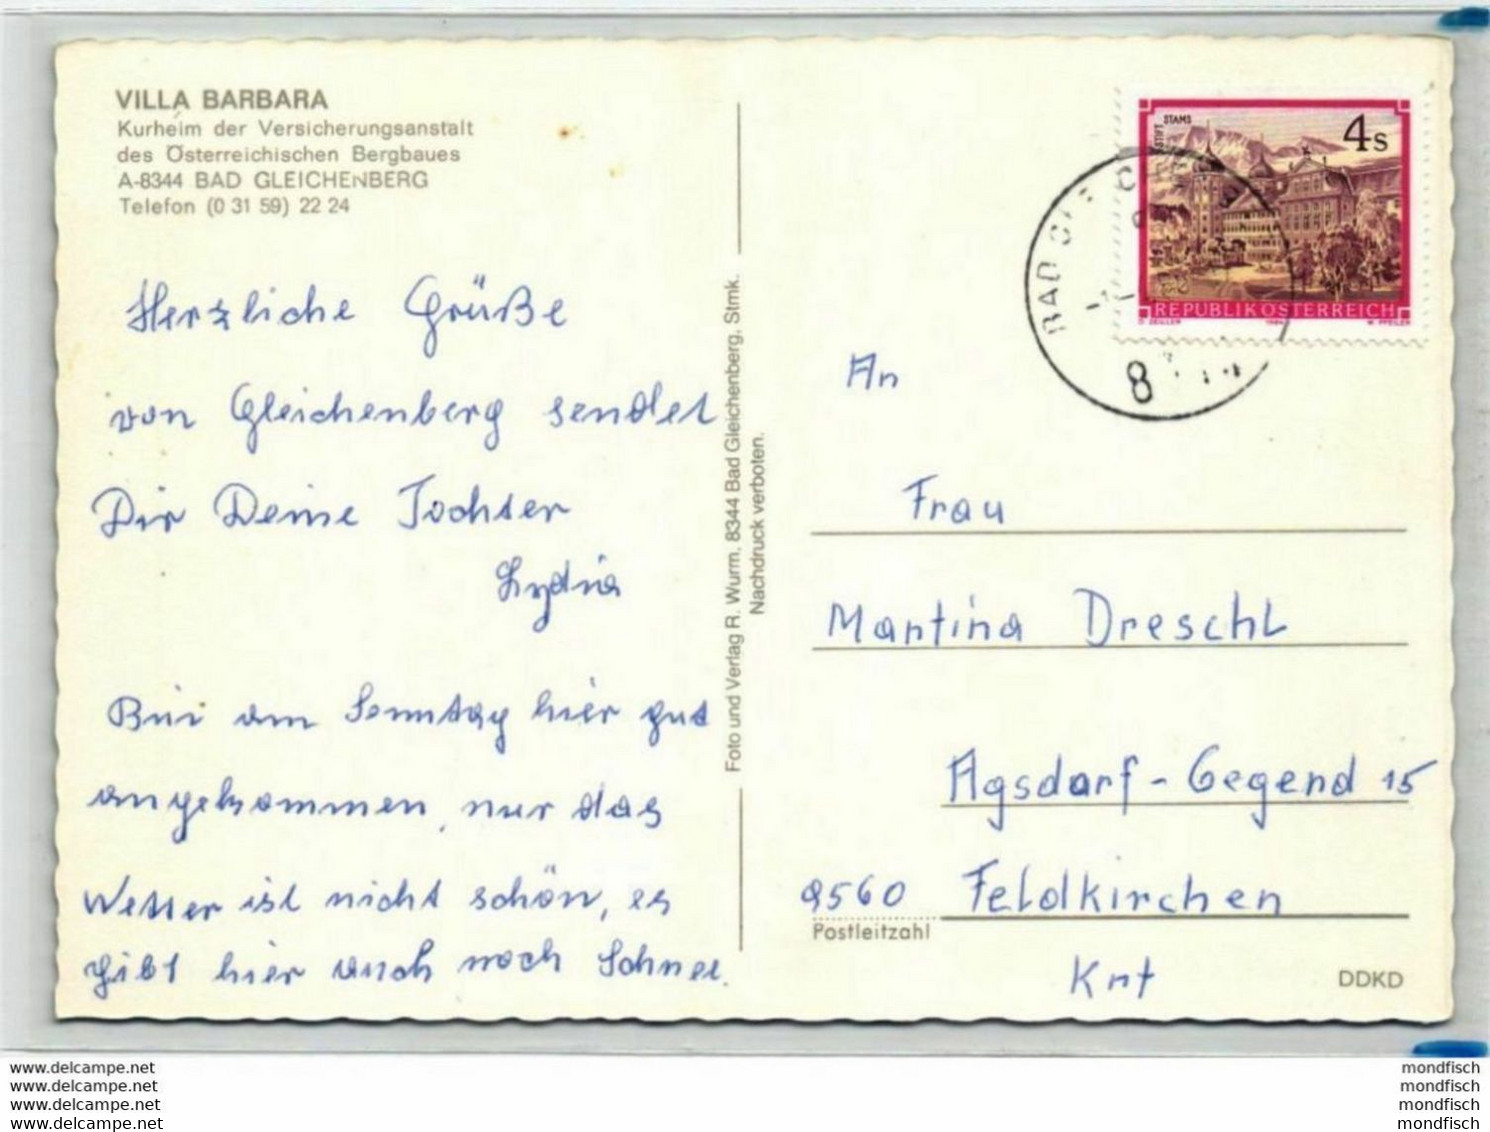 VILLA BARBARA
Kurheim der Versicherungsanstalt
des Österreichischen Bergbaues
A-8344 BAD GLEICHENBERG
Telefon (0 31 59) 22 24
Herzliche Grüße
von Gleichenberg sendet
Dir Deine Tochter
Lydia
Bin am Sonntag hier gut
angekommen, nur das
Wetter ist nicht schön, es
gibt hier auch noch Schnee.
Foto und Verlag R. Wurm, 8344 Bad Gleichenberg, Stmk.
Nachdruck verboten.
STIFT STAMS
4 S
REPUBLIK ÖSTERREICH
O. ZEILLER 1984 W. PFEILER
BAD
8
An
Frau
Martina Dreschl
Agsdorf-Gegend 15
9560 Feldkirchen
Postleitzahl
Knt
DDKD
www.delcampe.net
www.delcampe.net
www.delcampe.net
www.delcampe.net
mondfisch
mondfisch
mondfisch
mondfisch